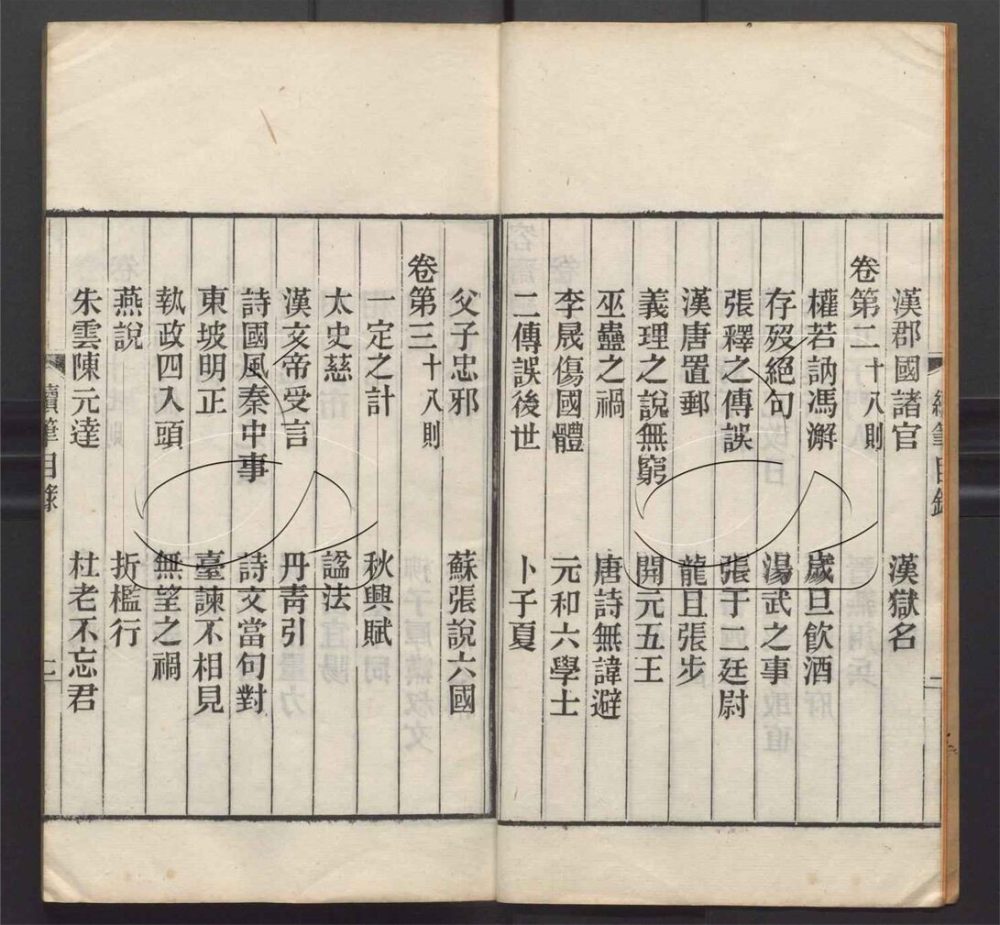 漢郡國諸官 漢獄名
卷第二十八則
權若訥馮澥 歲旦飲酒
存歿絕句 湯武之事
張釋之傳誤 張于二廷尉
漢唐置郵 龍且張步
義理之說無窮 開元五王
巫蠱之禍 唐詩無諱避
李晟傷國體 元和六學士
二傳誤後世 卜子夏
父子忠邪 蘇張說六國
卷第三十八則
一定之計 秋興賦
太史慈 諡法
漢文帝受言 丹青引
詩國風秦中事 詩文當句對
東坡明正 臺諫不相見
執政四入頭 無望之禍
燕說 折檻行
朱雲陳元達 杜老不忘君
續筆目錄